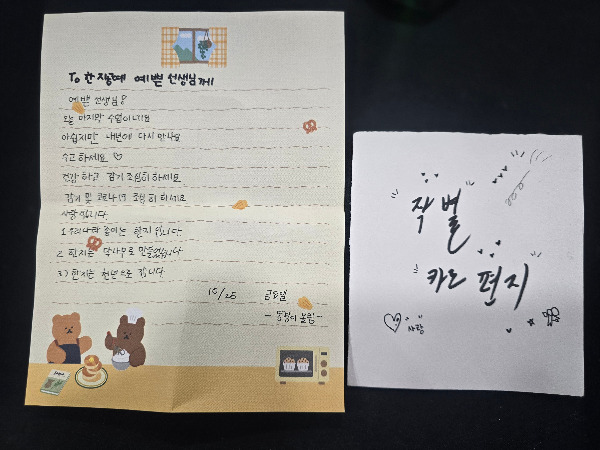 To 한지공예 예쁜 선생님께
예쁜 선생님!
오늘 마지막 수업이네요
아쉽지만 내년에 다시 만나요
수고하세요 ♡
건강하고 감기 조심히 하세요
감기 및 코로나19 조심히 하세요
사랑합니다.
1. 우리나라 종이는 한지입니다.
2. 한지는 닥나무로 만들었습니다
3) 한지는 천년으로 갑니다
10/25 금요일
올림-
작별
카드 편지
사랑